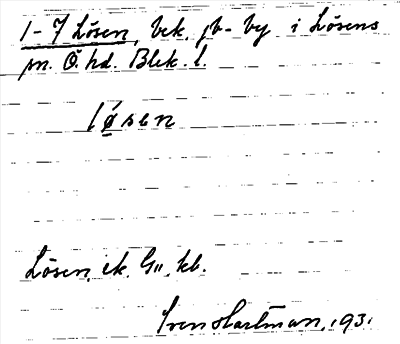 1-7 Lösen, bek. jb-by i Lösens
sn. Ö. hd. Blek. l.
løsen
Lösen, ek. G11, kb.
Sven Hartman, 1931